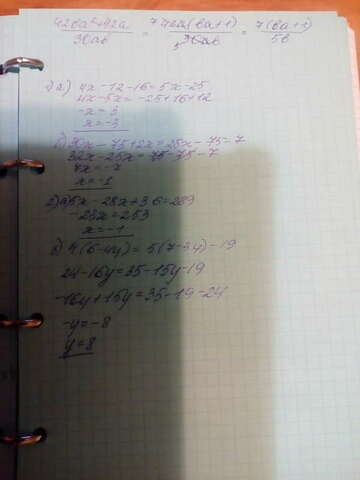 42ba²+42a / 30ab = 7 42a(ba+1) / 5 30ab = 7(ba+1) / 5b
1) а) 4x-12-16=5x-25
4x-5x=-25+16+12
-x=3
x=-3
32x-25x=75-75-7
7x=-7
x=-1
-28x+36=289
-28x=253
x=-1
4(6-4y)=5(7-3y)-19
24-16y=35-15y-19
-16y+15y=35-19-24
-y=-8
y=8